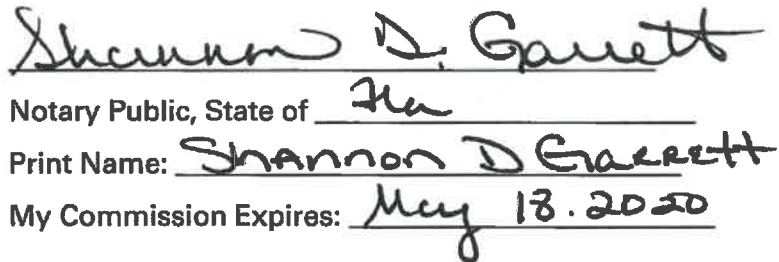 Shannon D. Garrett
Notary Public, State of Fla
Print Name: Shannon D Garrett
My Commission Expires: May 18. 2020